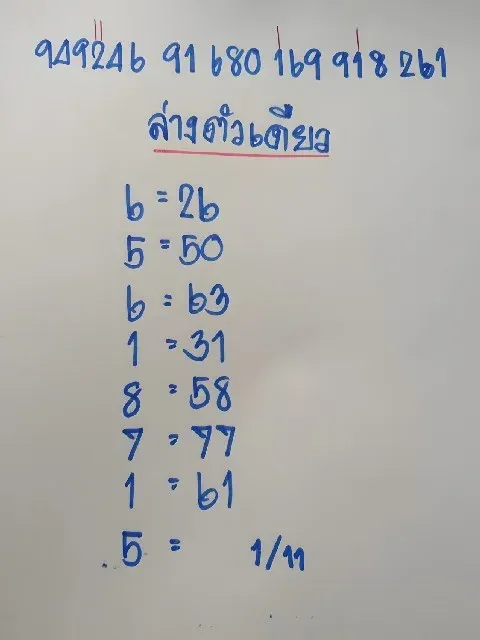 949246 91 680 169 918 261
ล่างตัวเดียว
6 = 26
5 = 50
6 = 63
1 = 31
8 = 58
7 = 77
1 = 61
5 = 1/11